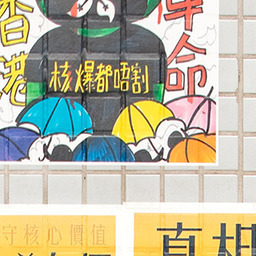 香港
革命
核爆都唔割
守核心價值
真相